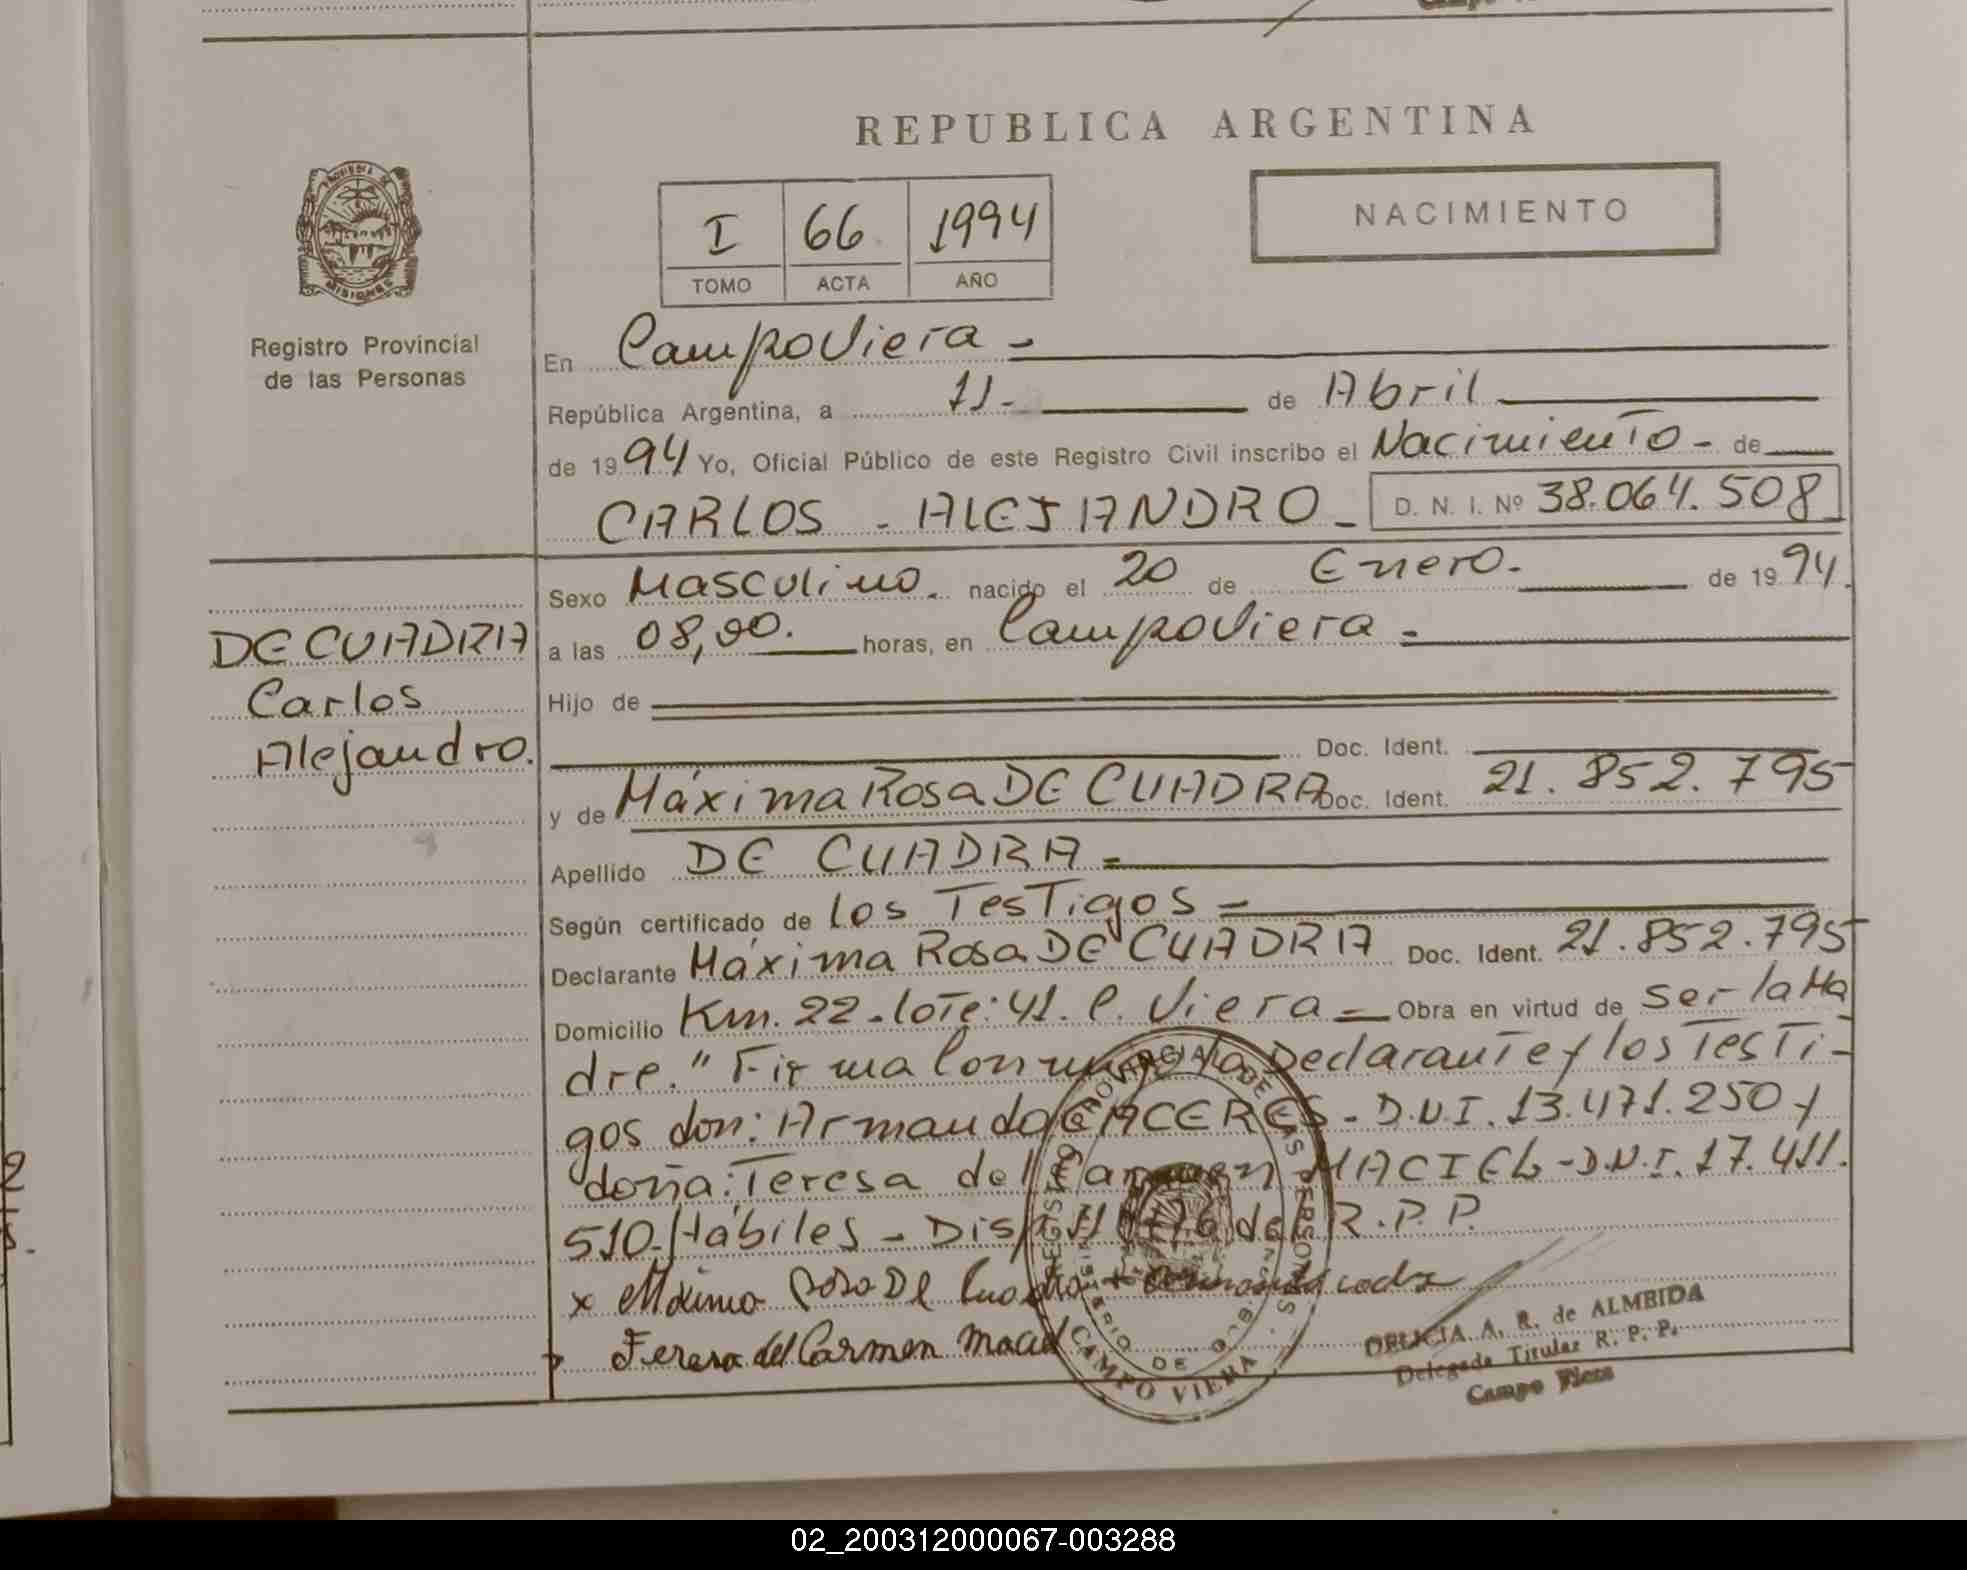 REPUBLICA ARGENTINA
NACIMIENTO
I 66 1994
TOMO ACTA AÑO
PROVINCIA DE
MISIONES
Registro Provincial
de las Personas
En Campo Viera -
República Argentina, a 11- de Abril
de 1994 Yo, Oficial Público de este Registro Civil inscribo el Nacimiento - de
CARLOS - ALEJANDRO - D. N. I. Nº 38.064.508
Sexo Masculino. nacido el 20 de Enero. de 1994.
DE CUADRA
Carlos
Alejandro.
a las 08,00. horas, en Campo Viera -
Hijo de
Doc. Ident.
y de Máxima Rosa DE CUADRA Doc. Ident. 21.852.795
Apellido DE CUADRA =
Según certificado de los Testigos -
Declarante Máxima Rosa DE CUADRA Doc. Ident. 21.852.795
Domicilio Km. 22 - lote: 41. C. Viera = Obra en virtud de ser la Ma
dre." Firma Conmigo la Declarante y los Testi-
gos don: Armando CACERES - D.N.I. 13.471.250 y
doña: Teresa del Carmen MACIEL - D.N.I. 17.411.
510. Hábiles - R.P.P.
x Máxima Rosa De Cuadra
Teresa del Carmen Maciel
REGISTRO PROVINCIAL DE LAS PERSONAS
MINISTERIO DE GOB.
CAMPO VIERA
DELICIA A. R. de ALMEIDA
Delegada Titular R. P. P.
Campo Viera
2
02_200312000067-003288